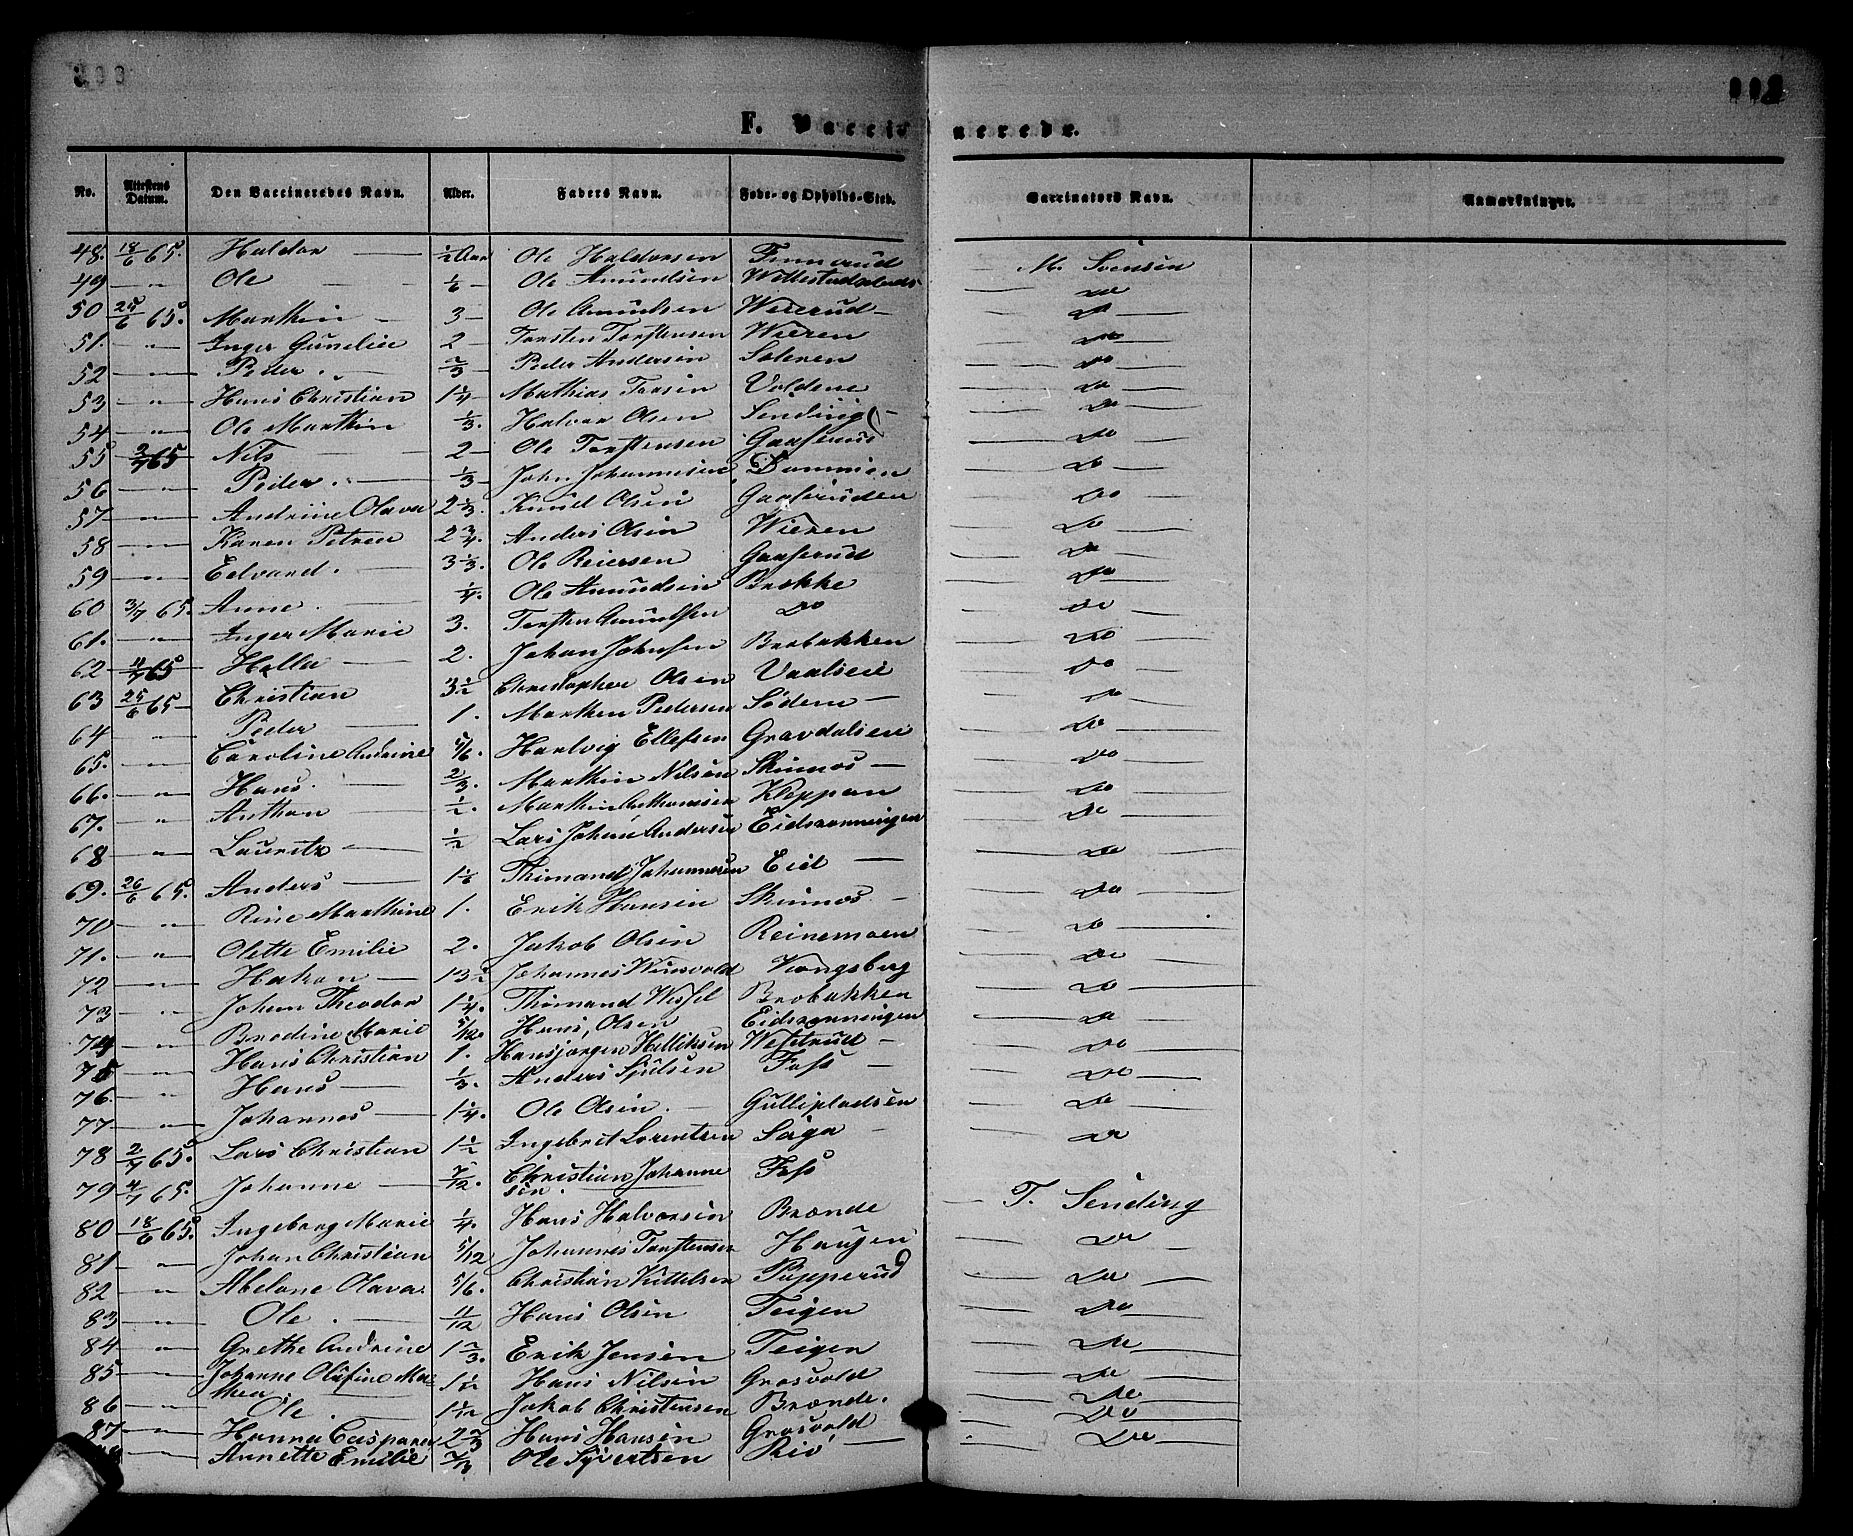 F. Vaccinerede.
No. Attestens Datum. Den Vaccineredes Navn. Alder. Faders Navn. Føde- og Opholds-Sted. Vaccinators Navn. Anmærkninger.
48. 18/6 65. Haldor — 1/2 Aar Ole Haldorsen Finnerud — M. Svensen
49 — " — Ole — 1/6 — Ole Amundsen — Do —
50 25/6 65. Marthin — 3 — Ole Amundsen Wiierud — — Do —
51. — " — Inger Gunelie 2 — Torsten Torstensen Wieren — Do —
52 — " — Peder. — 2/3 — Peder Andersen Soleren — Do —
53 — " — Hans Christian 1 1/4 — Mathias Torsen Voldene — Do —
54 — " — Ole Marthin 1/3. Halvor Olsen Sending — — Do —
55 2/7 65 Nils — 2 — Ole Torstensen Gaaserud — Do —
56 — " — Peder. — 1/3 — John Johannesen Dammen — Do —
57 — " — Andrine Olava 2 1/3. Knud Olsen Gaaseruden — Do —
58 — " — Karen Petrea 2 3/4. Anders Olsen Wieren — Do —
59 — " — Edvard. — 3 1/3. Ole Reiersen Gaaserud — Do —
60 3/7 65. Anne. — 1/4. Ole Amundsen Brække — Do —
61. — " — Inger Marie 3. Torsten Amundsen Do — Do —
62 4/7 65 Hella — 2. Johan Johnsen Brobakken — Do —
63 25/6 65 — Christian 3 1/2 Christopher Olsen Vaalseie — Do —
64 — " — Peder — 1. Marthen Pedersen Södene — — Do —
65. — " — Caroline Andrine 5/6. Hartvig Ellefsen Gravdalseie — Do —
66. — " — Hans. — 2/3. Marthin Nilsen Skinnes — — Do —
67. — " — Anthon — 1/2. Marthin Anthonsen Kleppan — Do —
68 — " — Lauritz — 1/2 Lars Johan Andersen Eidsrønningen — Do —
69. 26/6 65. Anders — 1 1/6 Thimand Johannesen Eid — — Do —
70 — " — Rine Marthine 1. Erik Hansen Skinnes — — Do —
71. — " — Olette Emilie 2. Jakob Olsen Reinemoen — Do —
72 — " — Hakon — 13 1/2 Johannes Kongsberg — Do —
73 — " — Johan Theodor 1 1/4. Thimand Wessel Brobakken — Do —
74 — " — Brodine Marie 5/12. Hans Olsen Eidsrønningen — Do —
75 — " — Hans Christian 1. Hansjørgen Helliksen Westrud — — Do —
76. — " — Hans — 1/3. Anders Foss — — Do —
77 — " — Johannes — 1 1/4. Ole Olsen. — Gullipladsen — Do —
78 2/7 65. Lars Christian 1 1/2 Ingebret Lorentsen Saga — — Do —
79 4/7 65. Johanne — 7/12. Christian Johannesen. Foss — T. Sending
80 — 18/6 65. Ingeborg Marie 1/4. Hans Halvorsen Brænde — Do —
81 — " — Johan Christian 5/12 Johannes Torstensen Haugen — Do —
82 — " — Abelone Olava 5/6. Christian Kittelsen Papperud — Do —
83 — " — Ole. — 11/12 Hans Olsen Teigen — Do —
84 — " — Grethe Andrine 1 2/3. Erik Jensen Teigen — Do —
85 — " — Johanne Olufine Mathea 1 1/12 Hans Nilsen Grosvold — Do —
86 — " — Ole. — 1 1/12 Jakob Christensen Brænde. — Do —
87 — " — Hanna Caspara 2 2/3 Hans Hansen Grosvold — Do —
88 — " — Annette Emilie 2/3 Ole Syvertsen — Do —